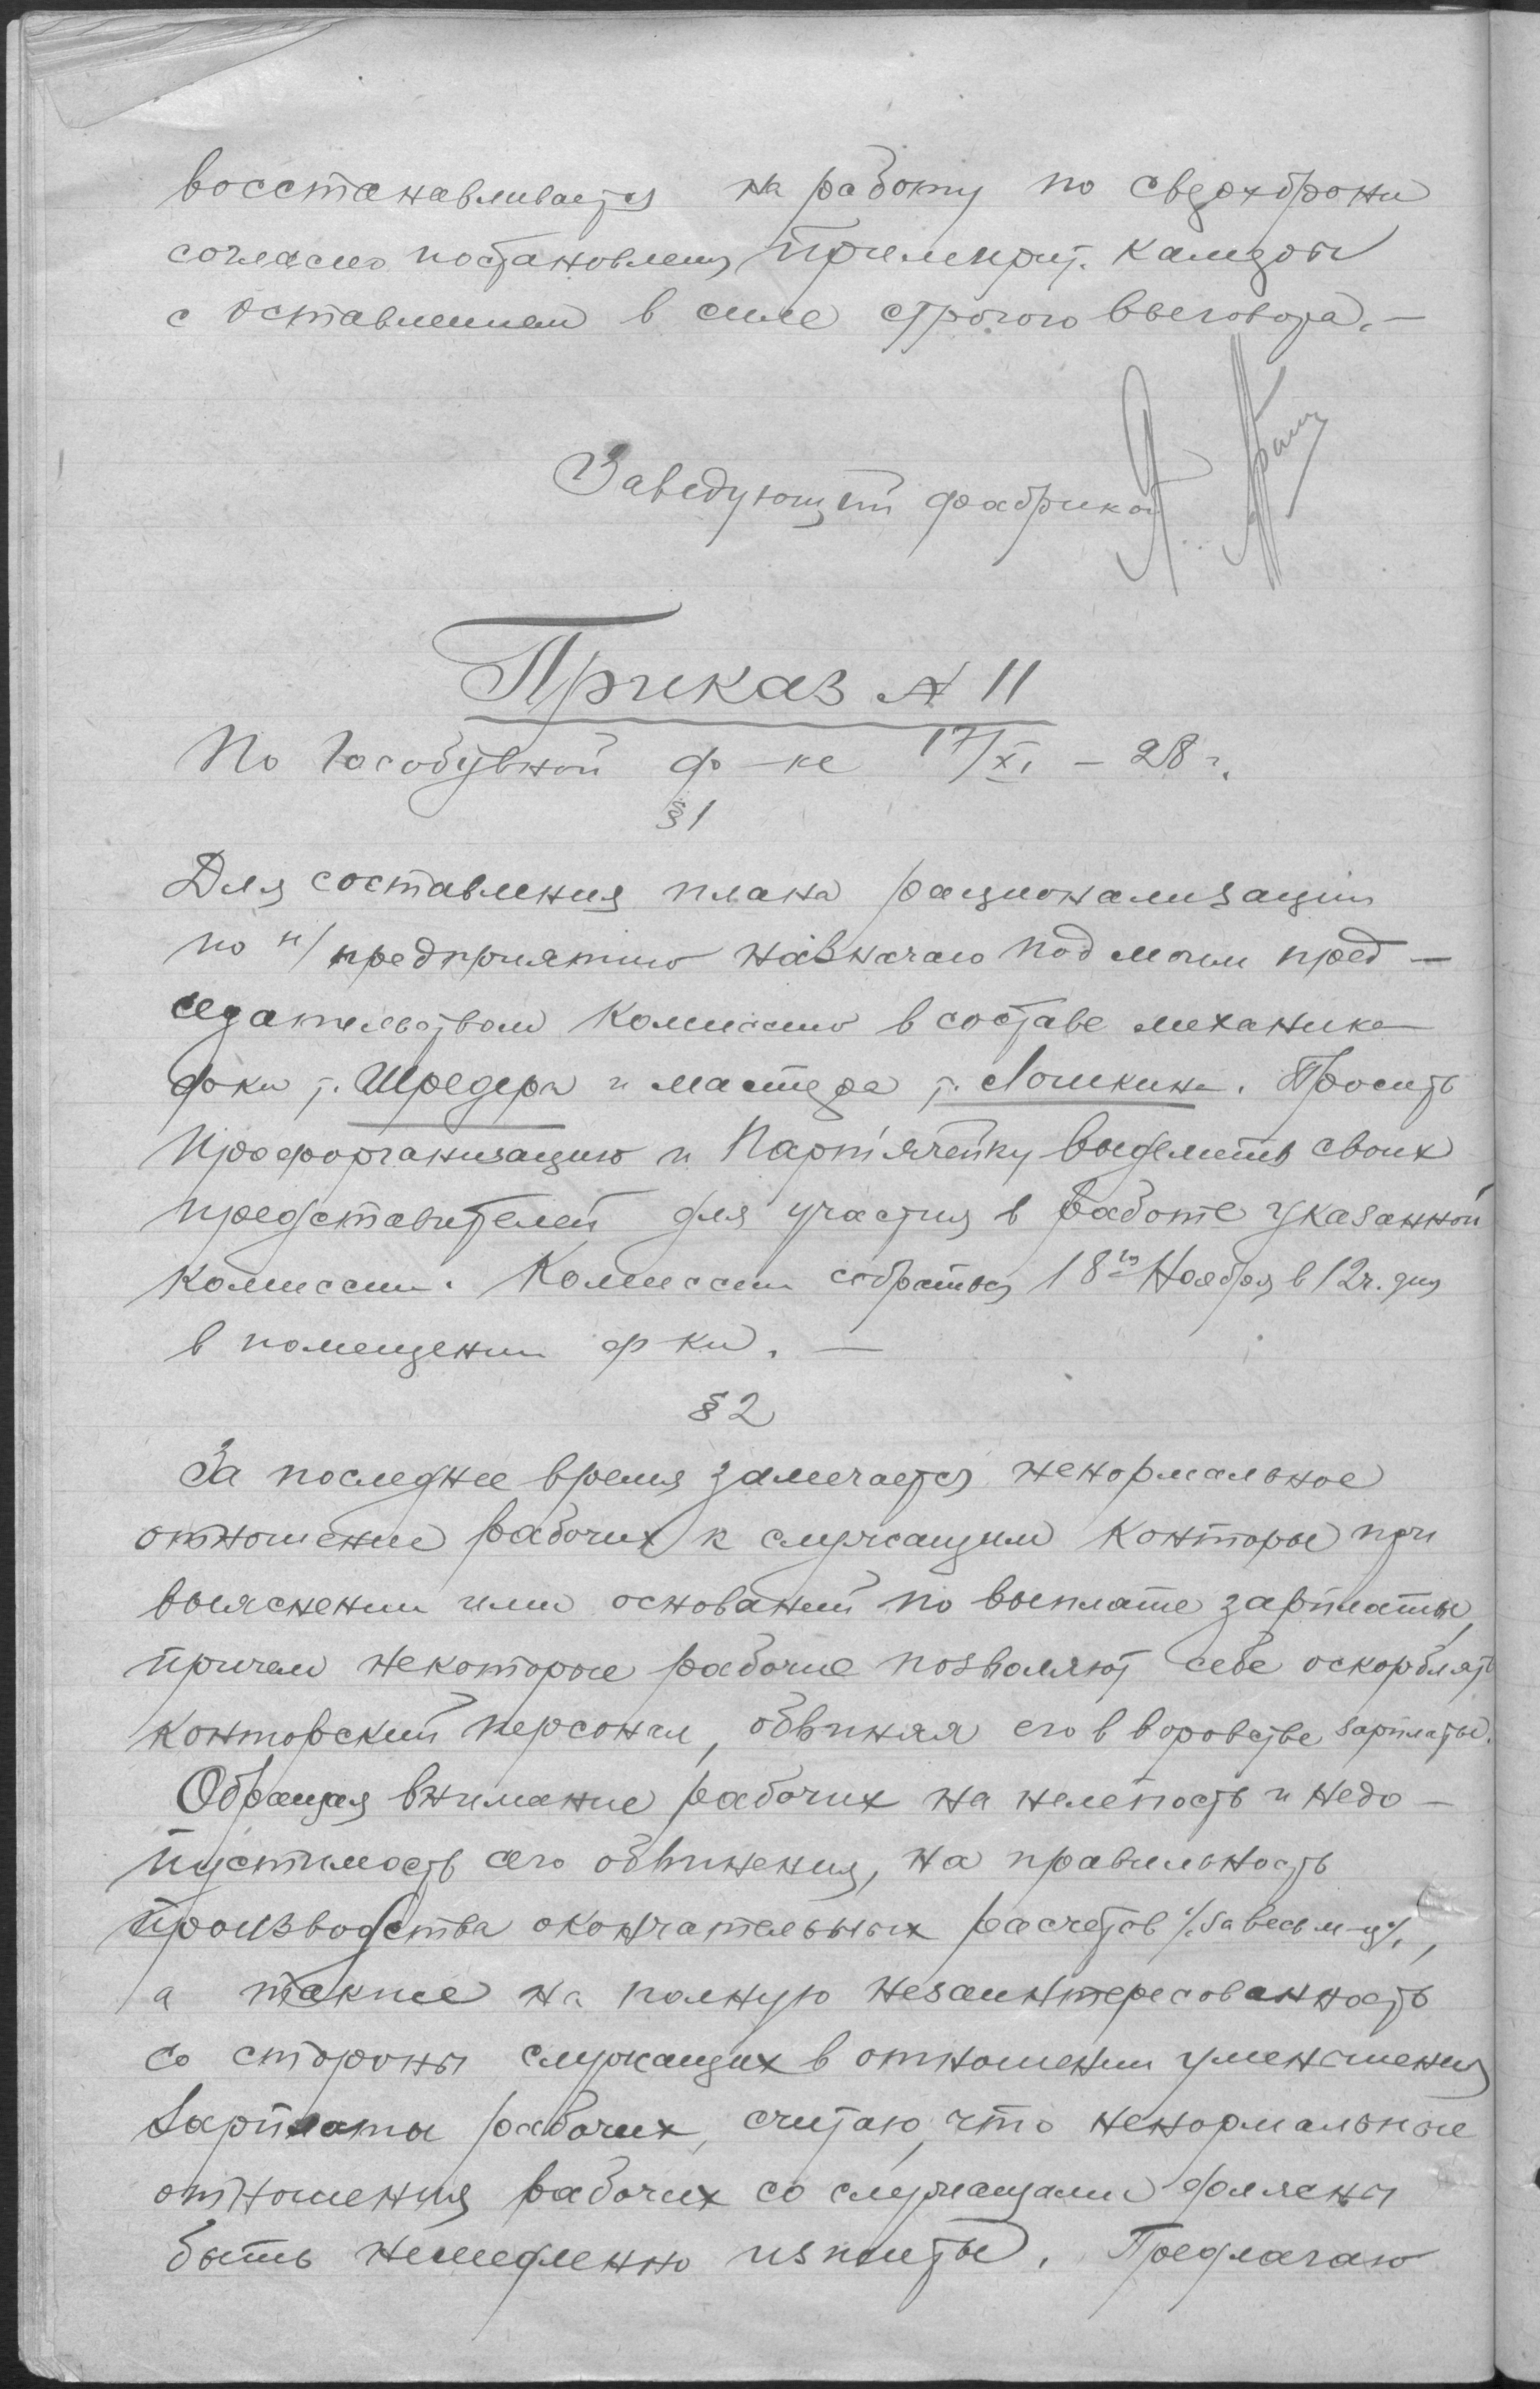 восстанавливается на работу по сверхброни
согласно постановлен, Примирит. Камеры
с оставлением в силе строгого выговора. —
Заведующий фабрикой
Приказ № 11
По Гособувной ф-ке 17/XI – 28 г.
§ 1
Для составления плана рационализации
по н/предприятию назначаю под моим пред—
седательством Комиссию в составе механика
ф-ки т. Шредера и мастера т. Лошкина. Просить
Профорганизацию и Парт'ячейку выделить своих
представителей для участия в работе указанной
Комиссии. Комиссии собраться 18го Ноября в 12ч. дня
в помещении ф-ки. —
§ 2
За последнее время замечается ненормальное
отношение рабочих к служащим Конторы при
выяснении ими оснований по выплате зарплаты,
причем некоторые рабочие позволяют себе оскорблять
конторский персонал, обвиняя его в воровстве зарплаты.
Обращая внимание рабочих на нелепость и недо—
пустимость сего обвинения, на правильность
производства окончательных расчетов /за весь м-ц/,
а также на полную незаинтересованность
со стороны служащих в отношении уменьшения
зарплаты рабочих, считаю, что ненормальные
отношения рабочих со служащими должны
быть немедленно изжиты. Предлагаю